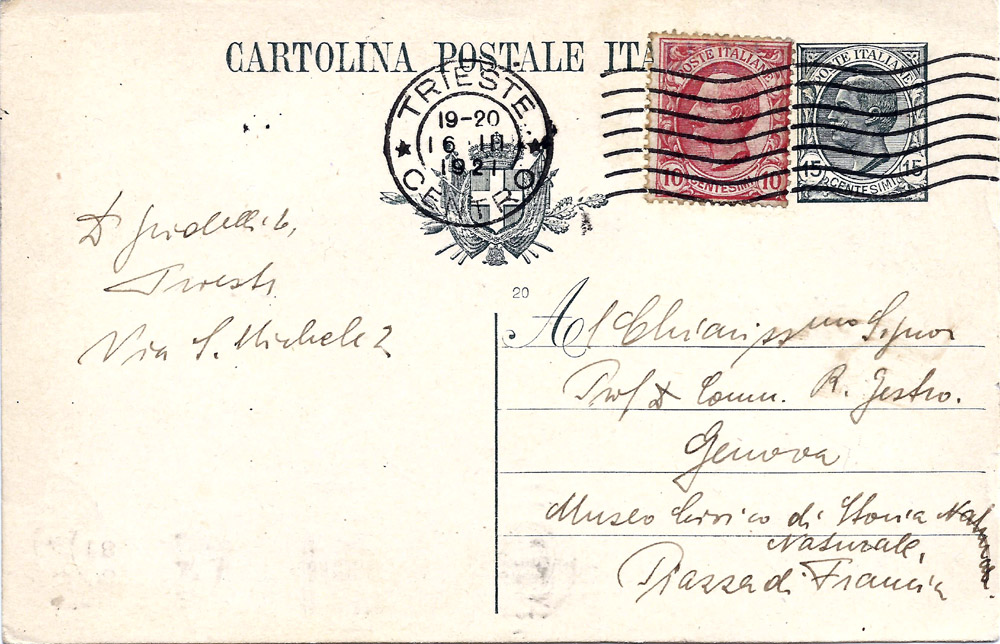 CARTOLINA POSTALE ITA
TRIESTE
19-20
16 III
1921
CENTRO
POSTE ITALIANE
10 CENTESIMI 10
POSTE ITALIANE
15 CENTESIMI 15
D
Trieste
Via S. Michele 2
20
Al Chiariss mo Signor
Prof D Comm. R. Gestro.
Genova
Museo Civico di Storia
Naturale,
Piazza di Francia